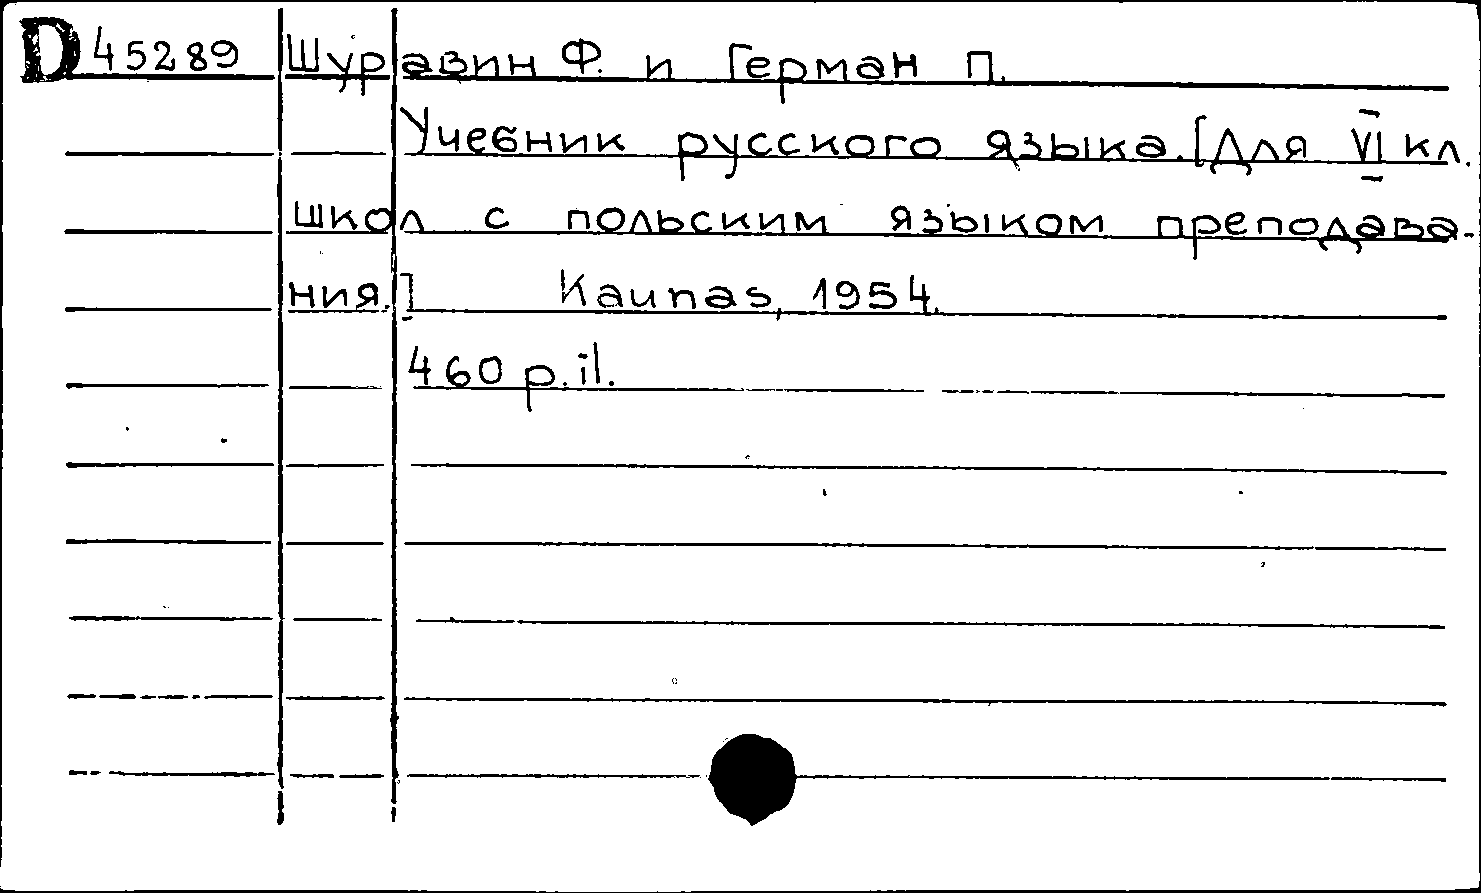 D 45289 Шуравин Ф. и Герман П.
Учебник русского языка. [Для VI кл.
школ с польским языком преподава-
ния.] Kaunas, 1954.
460 p. il.